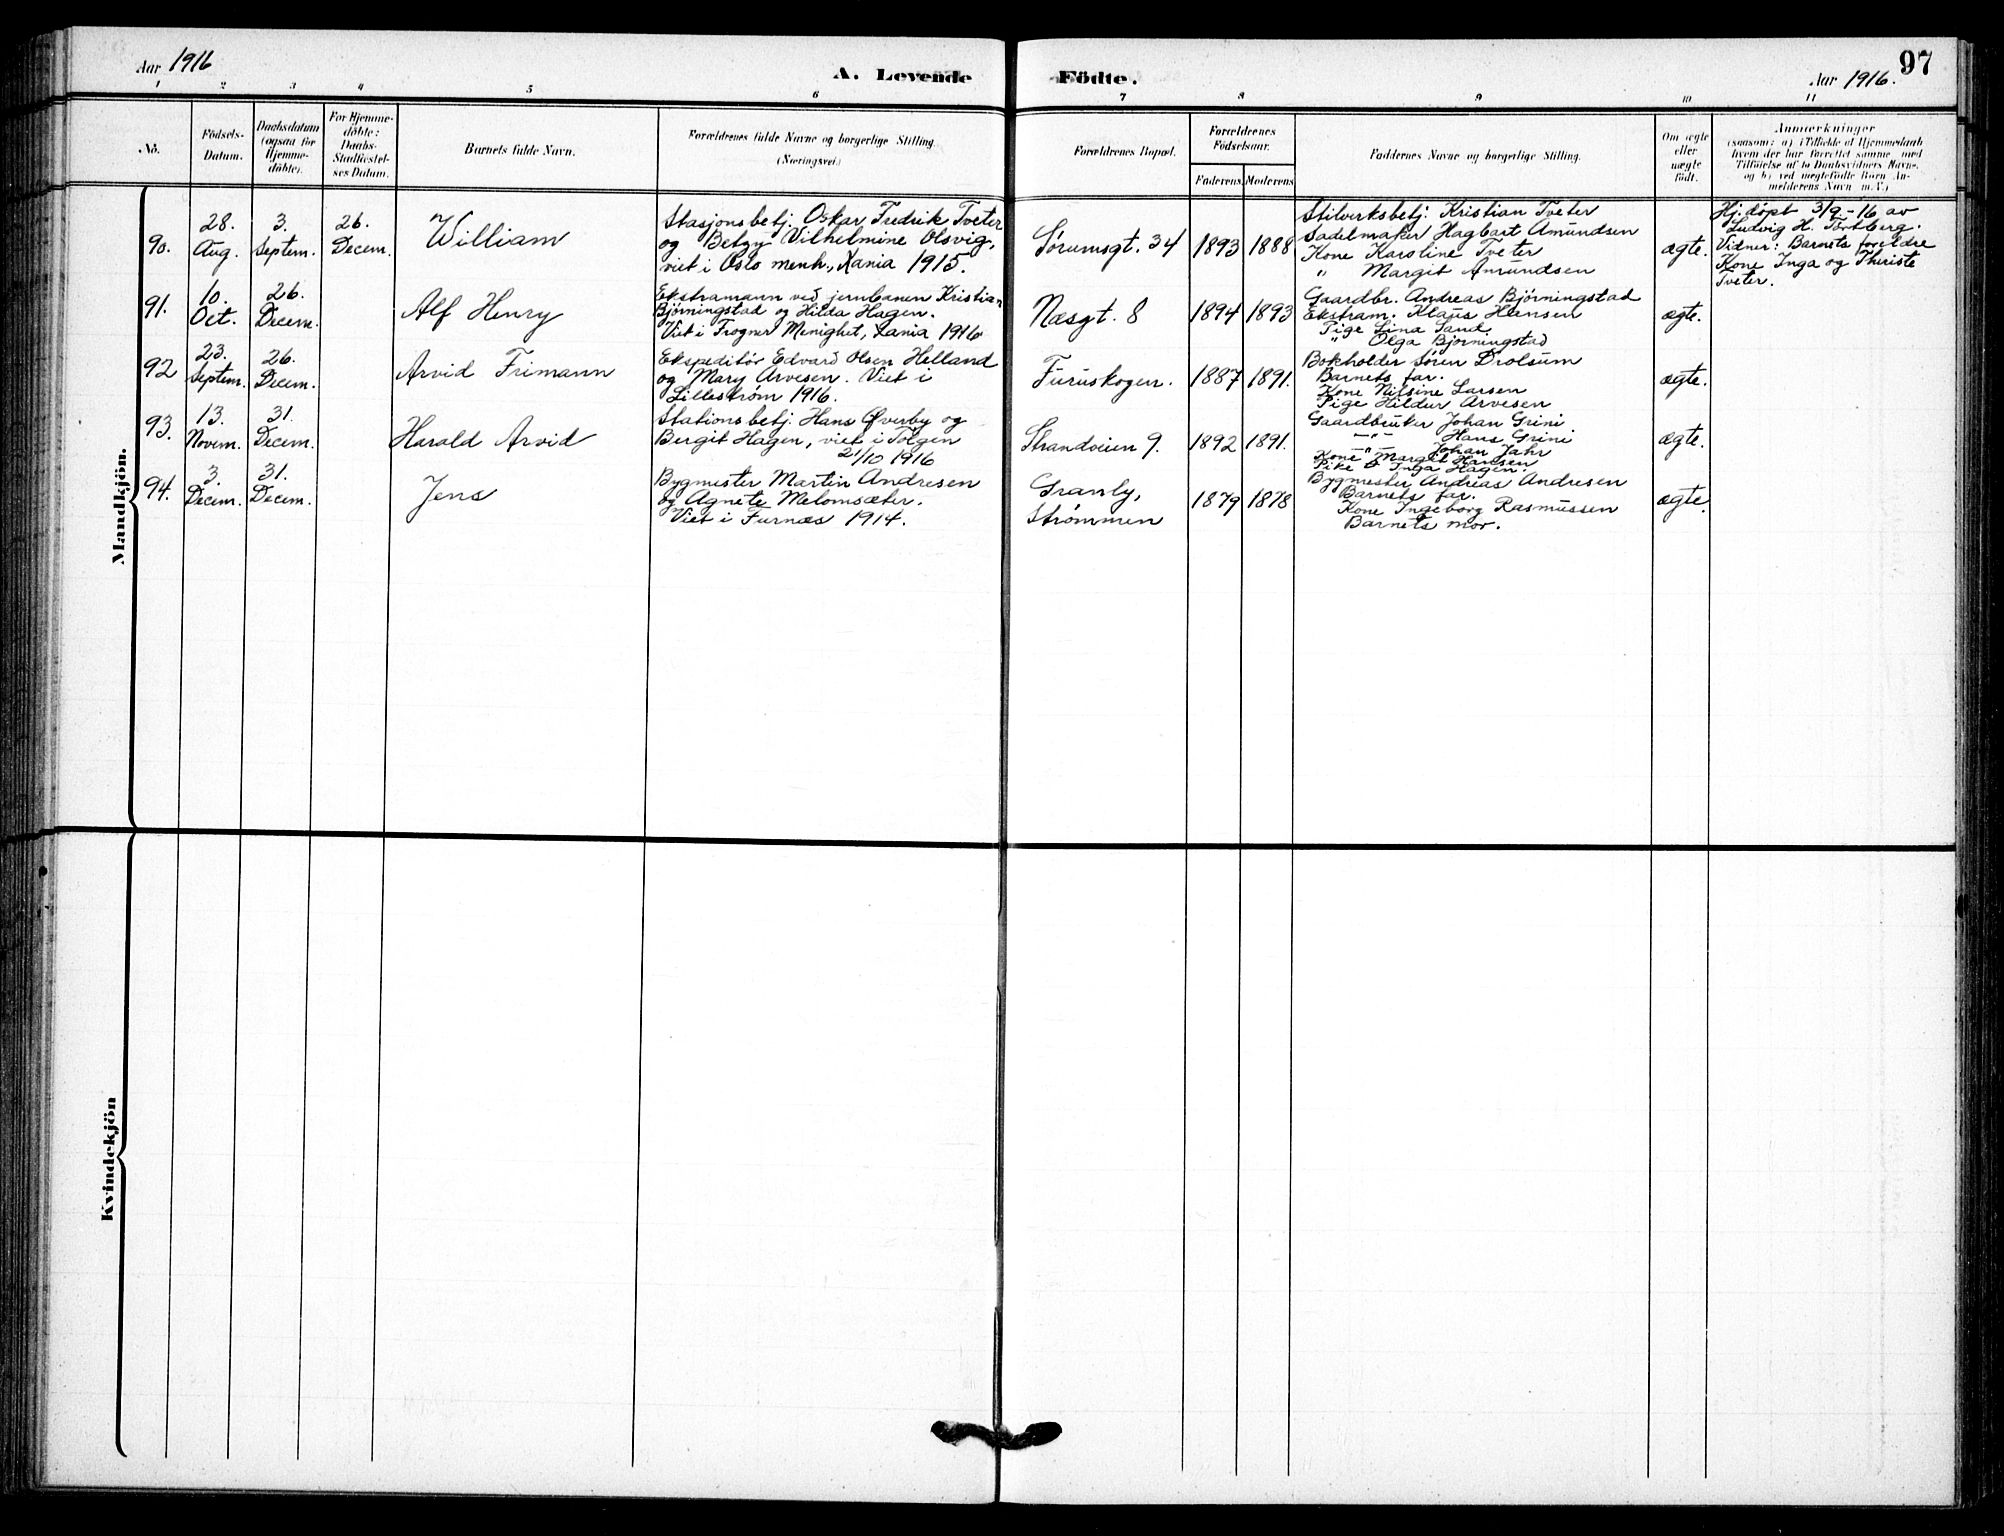 Aar 1916
A. Levende Födte.
97
Aar 1916.
1 2 3 4 5 6 7 8 9 10 11
No.
Födsels-
Datum.
Daabsdatum
(ogsaa for
Hjemme-
döbte).
For Hjemme-
döbte:
Daabs-
Stadfæstel-
ses Datum.
Barnets fulde Navn.
Forældrenes fulde Navne og borgerlige Stilling.
(Næringsvei.)
Forældrenes Bopæl.
Forældrenes
Födselsaar.
Faderens. Moderens.
Faddernes Navne og borgerlige Stilling.
Om ægte
eller
uægte
födt.
Anmærkninger
(saasom: a) i Tilfælde af Hjemmedaab
hvem der har forrettet samme med
Tilföielse af to Daabsvidners Navne,
og b) ved uægtefödte Börn An-
melderens Navn m.V.)
Mandkjön.
90.
28.
Aug.
3.
Septem.
26.
Decem.
William
Stasjonsbetj. Oskar Fredrik Tveter
og Betzy Vilhelmine Olsvig,
viet i Oslo menh., Kania 1915.
Sørumsgt. 34
1893
1888
Stilverksbetj. Kristian Tveter
Sadelmaker Hagbart Amundsen
Kone Karoline Tveter
" Margit Amundsen
ægte.
Hj.døpt 3/9-16 av
Ludvig H. Tortberg.
Vidner: Barnets foreldre
Kone Inga og Theriste
Tveter.
91.
10.
Oct.
26.
Decem.
Alf Henry
Ekstramann ved jernbanen Kristian
Bjørningstad og Hilda Hagen.
Viet i Frogner Menighet, Kania 1916
Næsgt. 8
1894
1893
Gaardbr. Andreas Bjørningstad
Ekstram. Klaus Hansen
Pige Lina Sand
" Olga Bjørningstad
ægte.
92
23.
Septem.
26.
Decem.
Arvid Frimann
Ekspeditør Edvard Olsen Helland
og Mary Arvesen. Viet i
Lillestrøm 1916.
Furuskogen.
1887
1891.
Bokholder Søren Drolsum
Barnets far.
Kone Nilsine Larsen
Pige Hildur Arvesen
ægte.
93.
13.
Novem.
31.
Decem.
Harald Arvid
Stationsbetj. Hans Øverby og
Bergit Hagen, viet i Tolgen
21/10 1916
Strandveien 9.
1892
1891.
Gaardbruker Johan Grini
-"- Hans Grini
-"- Johan Jahr
Kone Margit Hansen
Pike Inga Hagen.
ægte.
94.
3.
Decem.
31.
Decem.
Jens
Bygmester Martin Andresen
og Agnete Melomsæter.
Viet i Furnæs 1914.
Granly,
Strømmen
1879
1878
Bygmester Andreas Andresen
Barnets far.
Kone Ingeborg Rasmussen
Barnets mor.
ægte.
Kvindekjön